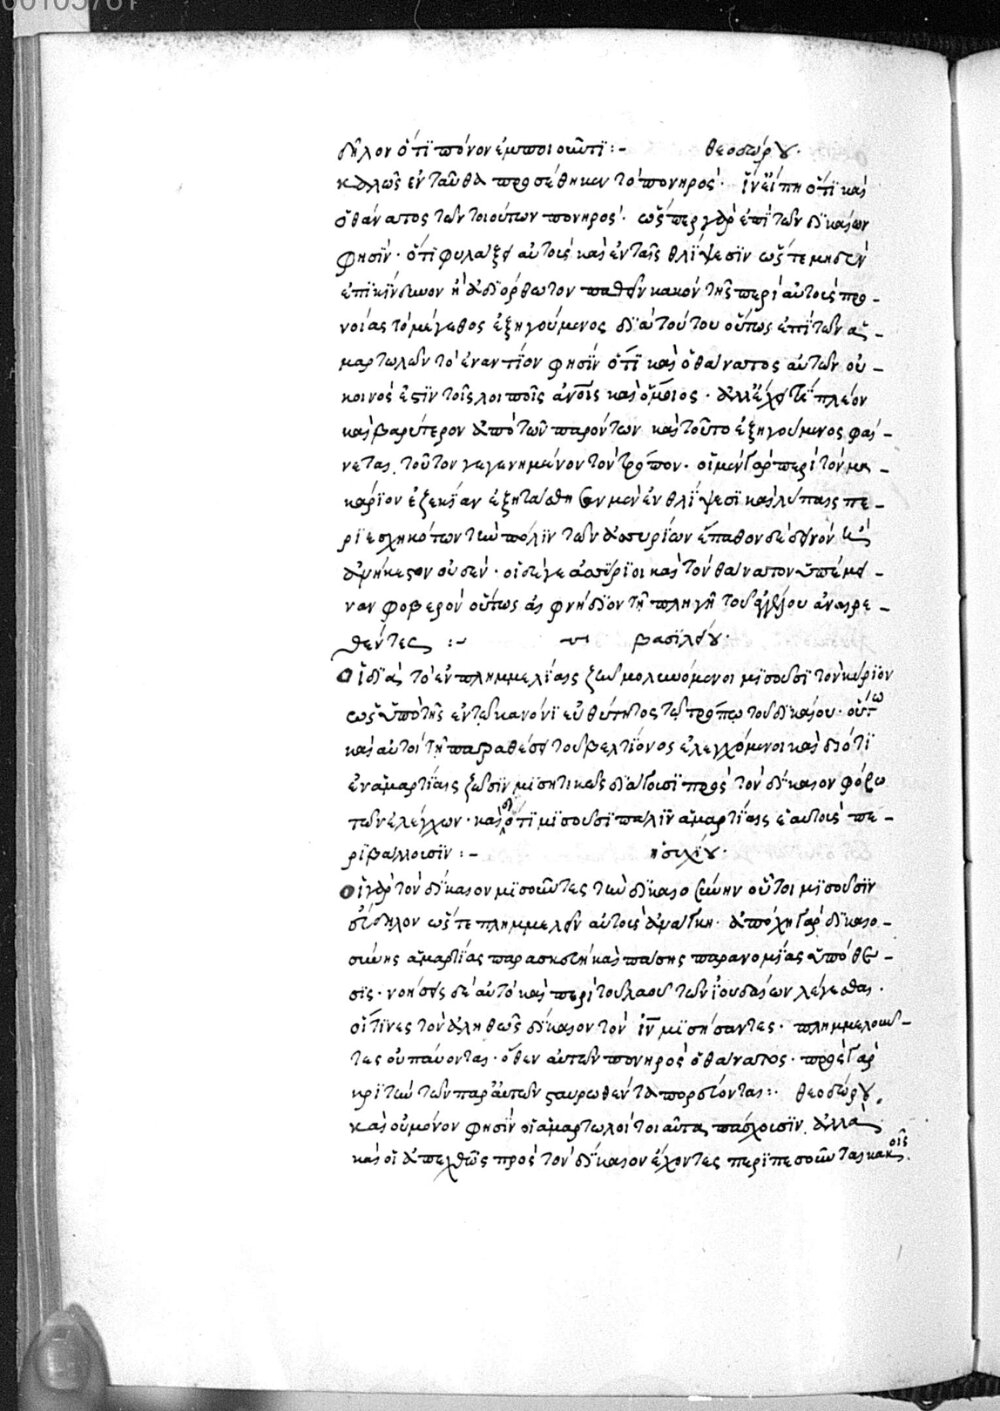 00105761
δῆλον ὅτι πόνον ἐμποιοῦντι :- θεοδώρου.
καλῶς ἐνταῦθα προσέθηκεν τὸ πονηρός. ἵν' εἴπη ὅτι καὶ
ὁ θάνατος τῶν τοιούτων πονηρός. ὥσπερ γὰρ ἐπὶ τῶν δικαίων
φησίν. ὅτι φυλάξει αὐτοὺς καὶ ἐν ταῖς θλίψεσιν ὥστε μηδὲν
ἐπικίνδυνον ἢ ἀδιόρθωτον παθεῖν κακόν τῆς περὶ αὐτοὺς προ-
νοίας τὸ μέγεθος ἐξηγούμενος διὰ τούτου οὕτως ἐπὶ τῶν ἁ-
μαρτωλῶν τὸ ἐναντίον φησίν ὅτι καὶ ὁ θάνατος αὐτῶν οὐ
κοινὸς ἐστιν τοῖς λοιποῖς ἀνοις καὶ ὅμοιος. ἀλλ' ἔχει τί πλέον
καὶ βαρύτερον ἀπὸ τῶν παρόντων καὶ τοῦτο ἐξηγούμενος φαί-
νεται τοῦτον γεγενημένον τὸν τρόπον. οἱ μὲν γὰρ περὶ τὸν μα-
κάριον ἐζεκίαν ἐξητάσθησαν μὲν ἐν θλίψεσι καὶ λύπαις πε-
ριεσχηκότων τὴν πόλιν τῶν ἀσσυρίων ἔπαθον δὲ δεινὸν καὶ
ἀνήκεστον οὐδέν. οἱ δέ γε ἀσσύριοι καὶ τὸν θάνατον ὑπέμει-
ναν φοβερὸν οὕτως αἰφνήδιον τῆ πληγῆ τοῦ ἀγγέλου ἀναιρε-
θέντες :- βασιλείου.
Οἱ διὰ τὸ ἐν πλημμελίαις ζῆν μολυνόμενοι μισοῦσι τὸν κύριον
ὡς ὑπὸ τῆς ἐν τῶ κανόνι εὐθύτητος τῶ τρόπω τοῦ δικαίου. οὕτω
καὶ αὐτοὶ τῆ παραθέσει τοῦ βελτίονος ἐλεγχόμενοι καὶ διότι
ἐν ἁμαρτίαις ζῶσιν μισητικῶς διάγουσι πρὸς τὸν δίκαιον φόβω
τῶν ἐλέγχων. καὶ διότι μισοῦσι πάλιν ἁμαρτίαις ἑαυτοὺς πε-
ριβάλλουσιν :- ἡσυχίου.
Οἱ γὰρ τὸν δίκαιον μισοῦντες τὴν δικαιοσύνην οὗτοι μισοῦσιν
εὔδηλον ὥστε πλημμελεῖν αὐτοὺς ἀνάγκη. ἀποχὴ γὰρ δικαιο-
σύνης ἁμαρτίας παρασκευὴ καὶ πάσης παρανομίας ὑπόθε-
σις. νοήσεις δὲ αὐτὸ καὶ περὶ τοῦ λαοῦ τῶν ἰουδαίων λέγεσθαι.
οἵτινες τὸν ἀληθῶς δίκαιον τὸν ιν μισήσαντες. πλημμελοῦν-
τες οὐ παύονται. ὅθεν αὐτῶν πονηρὸς ὁ θάνατος. πρὸς γὰρ
κριτὴν τῶν παρ' αὐτῶν σταυρωθέντα πορεύονται :· θεοδώρου.
καὶ οὐ μόνον φησὶν οἱ ἁμαρτωλοὶ τοιαῦτα πάσχουσιν. ἀλλὰ
καὶ οἱ ἀπεχθῶς πρὸς τὸν δίκαιον ἔχοντες περιπεσοῦνται κακοῖς.